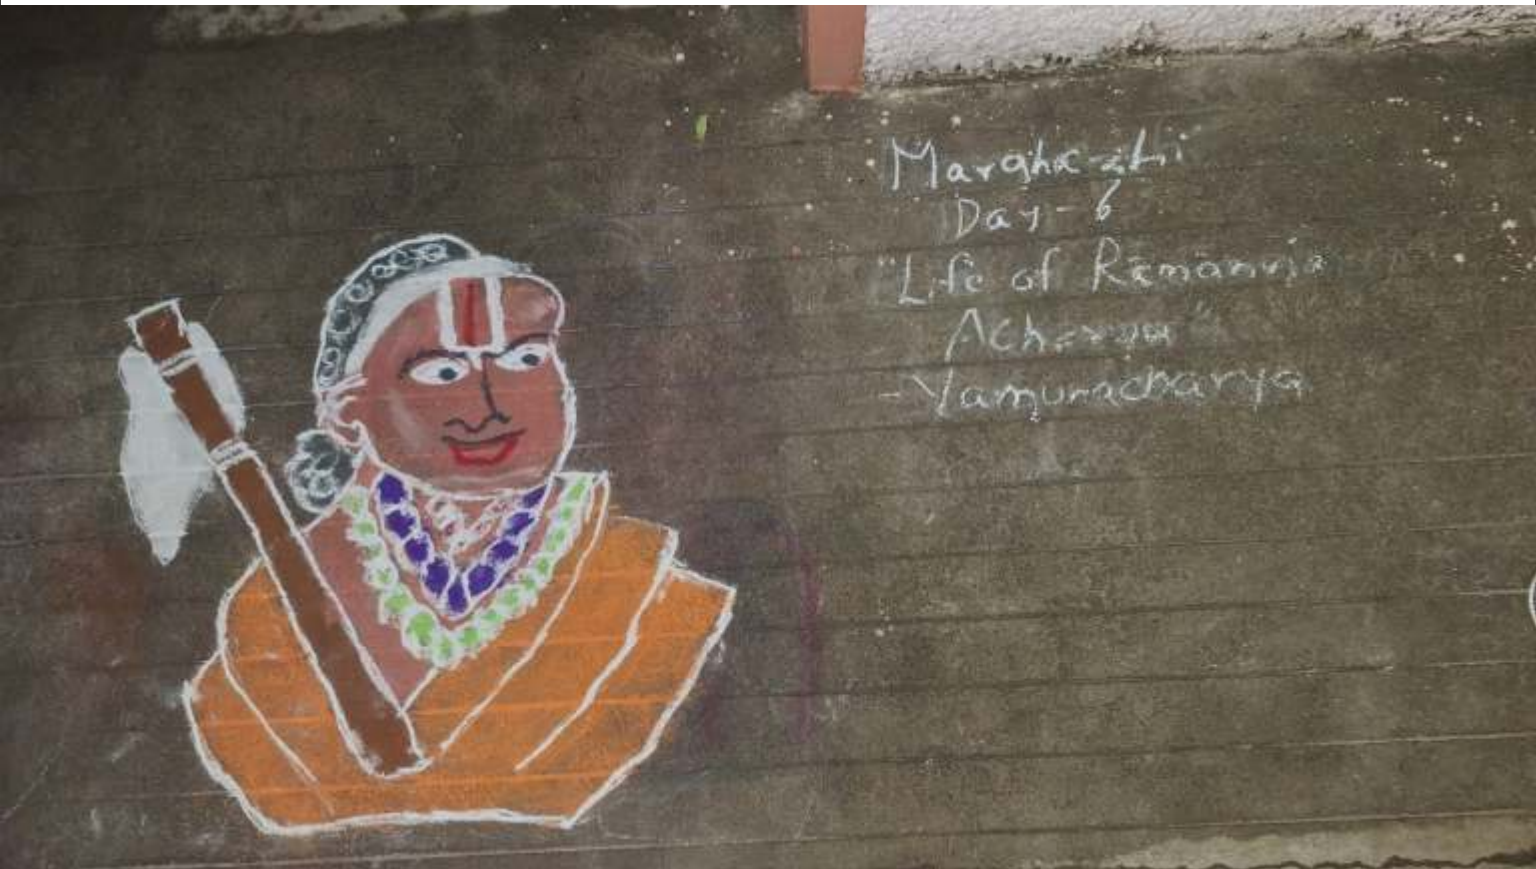 Marghazhi
Day-6
"Life of Ramanuja
Acharya"
- Yamunacharya